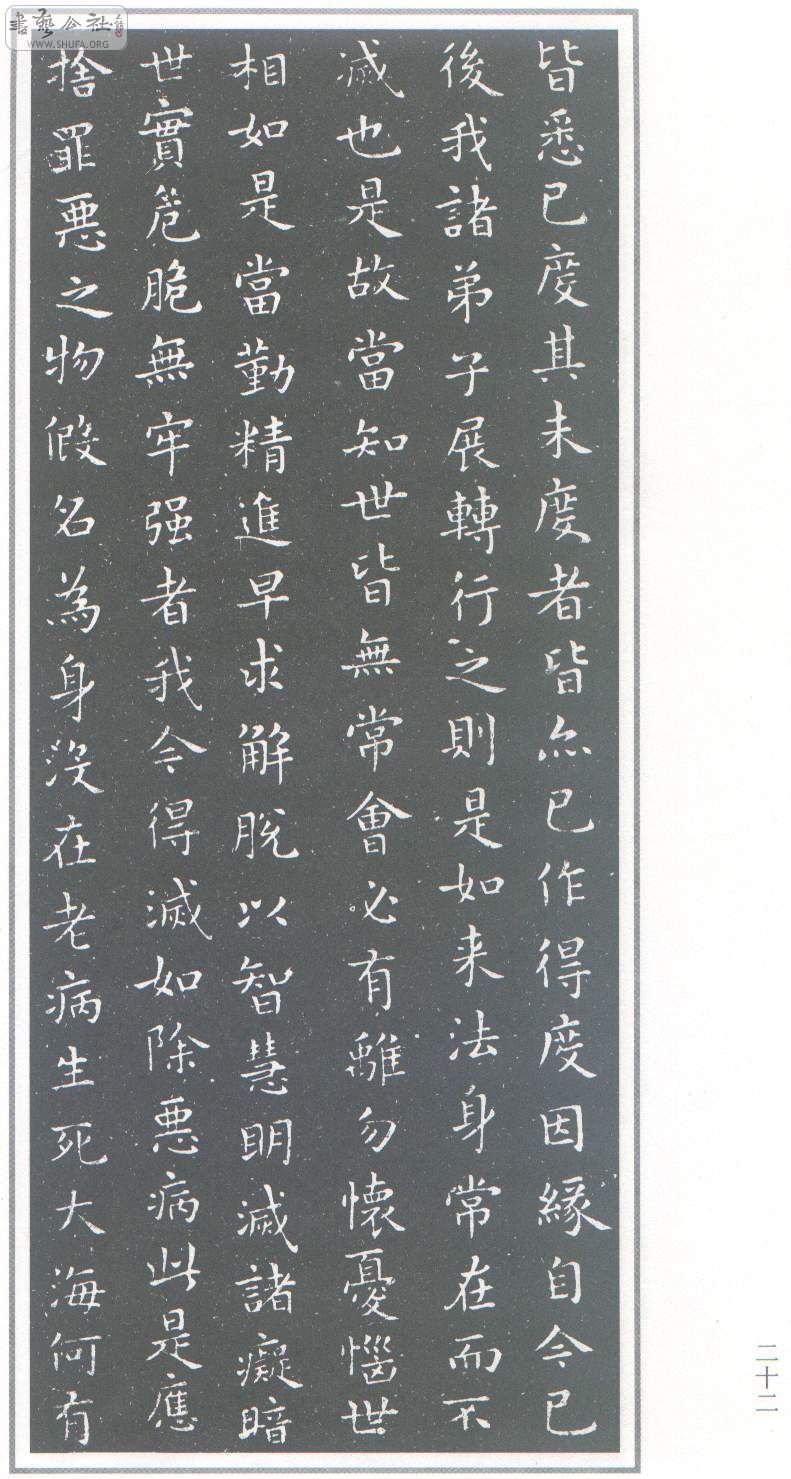 書藝公社
WWW.SHUFA.ORG
皆悉已度其未度者皆亦已作得度因緣自今已
後我諸弟子展轉行之則是如来法身常在而不
滅也是故當知世皆無常會必有離勿懷憂惱世
相如是當勤精進早求解脫以智慧明滅諸癡暗
世實危脆無牢强者我今得滅如除惡病此是應
捨罪惡之物假名為身没在老病生死大海何有
二十二